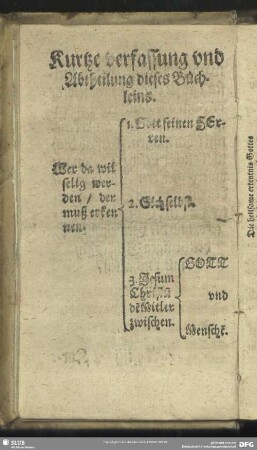 Kurtze verfassung vnd
Abtheilung dieses Büch-
leins.
Wer da wil
selig wer-
den / der
muß erken
nen.
1. Gott seinen HEr-
ren.
2. Sich selbst.
3. Jesum
Christũ
dẽ Mitler
zwischen.
GOTT
vnd
Menschẽ.
Die heilsame erkentnis Gottes
SLUB
DFG